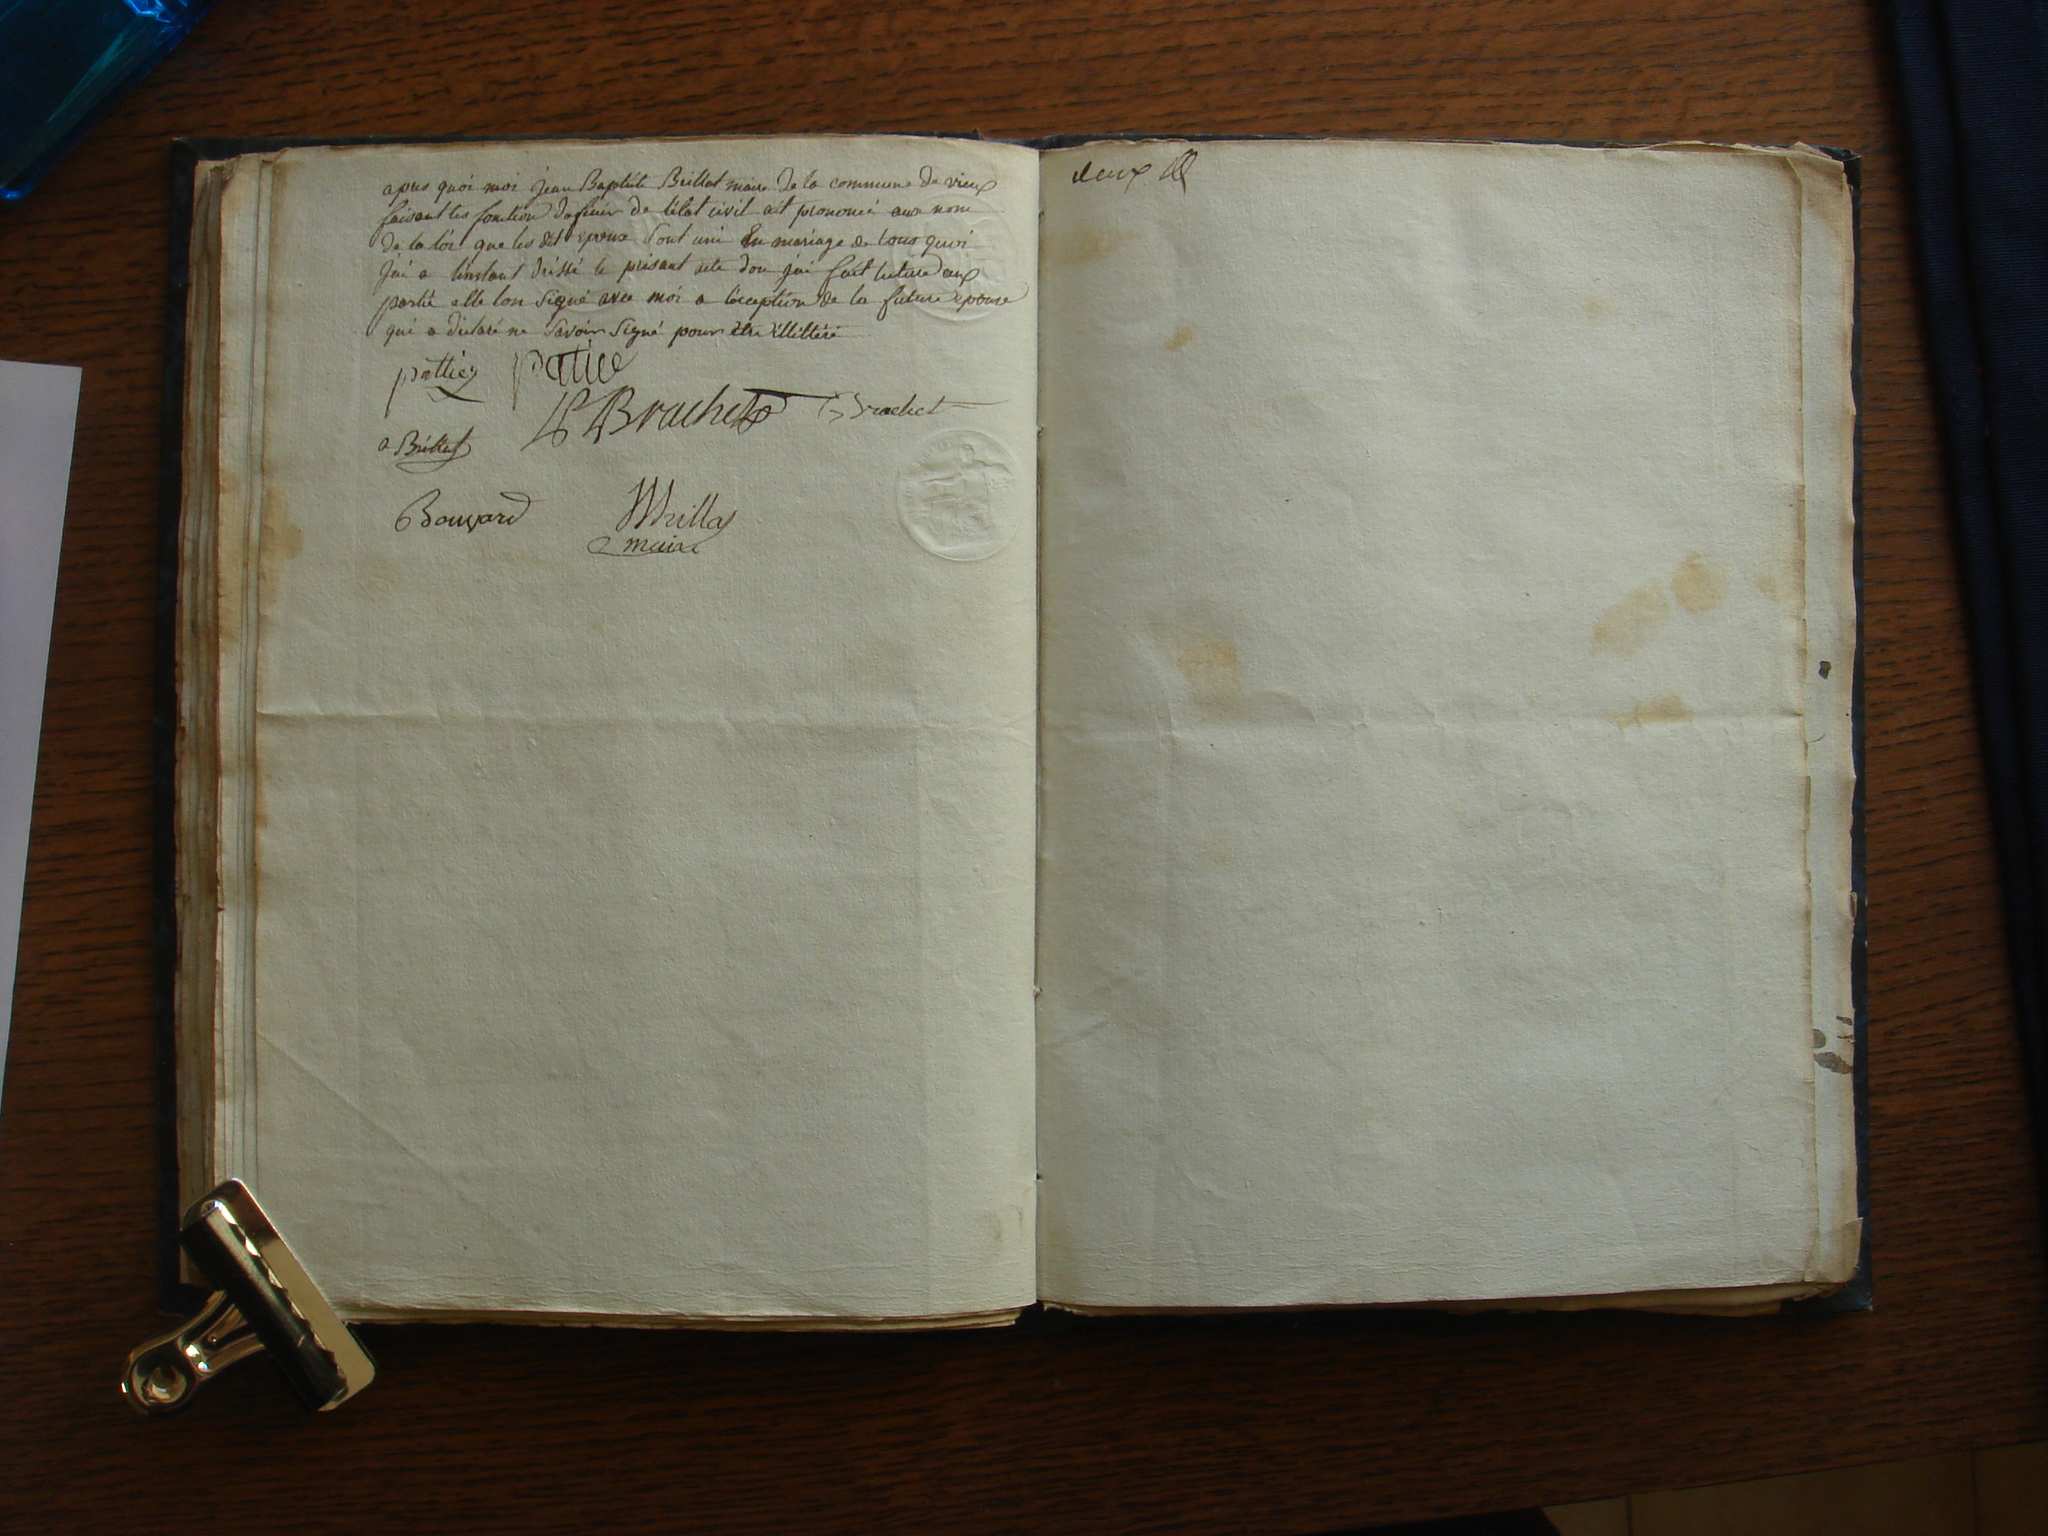 apres quoi moi jean Baptiste Brillat maire de la commune de vieux
faisant les fonction dofficier de létat civil ait prononcé aux nom
de la loi que les dit epoux sont uni En mariage de tous quoi
jai a linstant dréssé le présant acte don jai fait lecture aux
partie elle lon signé avec moi a léception de la future epouse
qui a déclaré ne savoir signé pour être illitéré
pattiey patice
Brachet Brachet
a Brillat
Bouvard Brillat
maire
deux